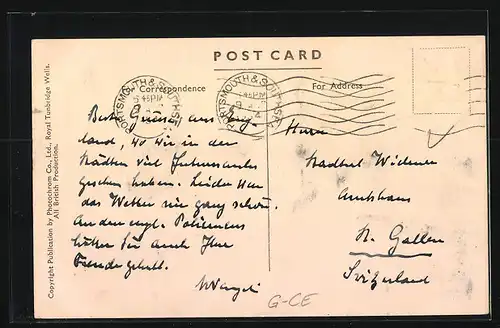 POST CARD
Correspondence
For Address
PORTSMOUTH & SOUTHSEA
PORTSMOUTH & SOUTHSEA
Beste Grüsse aus Eng-
land, wo wir in den
Städten viel Interessantes
gesehen haben. Leider war
das Wetter nie ganz schön.
An den engl. Policemens
hätten Sie auch Ihre
Freude gehabt.
Herrn
Stadtrat
Amtshaus
St. Gallen
Switzerland
G-CE
Copyright Publication by Photochrom Co., Ltd., Royal Tunbridge Wells.
All British Production.